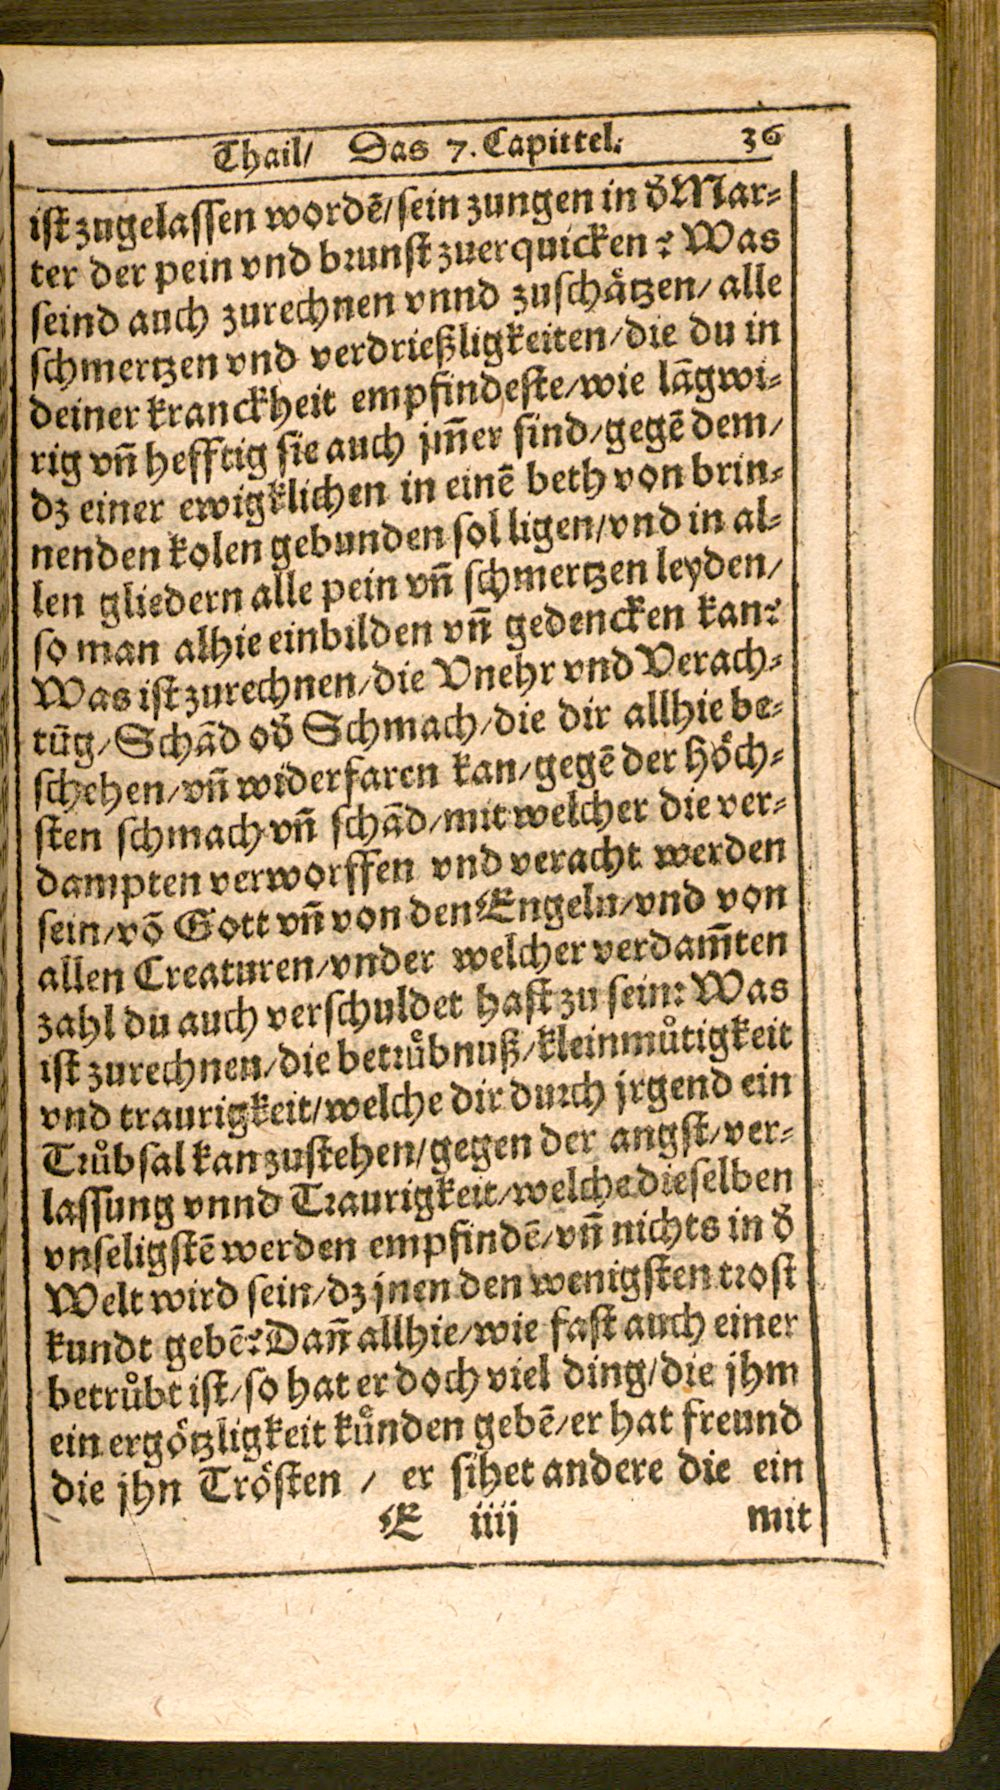 Thail/ Das 7. Capittel. 36
ist zugelassen wordē/ sein zungen in d̕ Mar⸗
ter der pein vnd brunst zuerquicken? Was
seind auch zurechnen vnnd zuschätzen/ alle
schmertzen vnd verdrießligkeiten/ die du in
deiner kranckheit empfindeste/ wie lāgwi⸗
rig vn̄ hefftig sie auch jm̄er sind/ gegē dem/
dz einer ewigklichen in einē beth von brin⸗
nenden kolen gebunden sol ligen/ vnd in al⸗
len gliedern alle pein vn̄ schmertzen leyden/
so man alhie einbilden vn̄ gedencken kan?
Was ist zurechnen/ die Vnehr vnd Verach⸗
tūg/ Schād od̕ Schmach/ die dir allhie be⸗
schehen/ vn̄ widerfaren kan/ gegē der Höch⸗
sten schmach vn̄ schād/ mit welcher die ver⸗
dampten verworffen vnd veracht werden
sein/ vō Gott vn̄ von den Engeln/ vnd von
allen Creaturen/ vnder welcher verdam̄ten
zahl du auch verschuldet hast zu sein? Was
ist zurechnen/ die betrůbnuß/ kleinmůtigkeit
vnd traurigkeit/ welche dir durch jrgend ein
Trůbsal kan zustehen/ gegen der angst/ ver⸗
lassung vnnd Traurigkeit/ welche dieselben
vnseligstē werden empfindē/ vn̄ nichts in d̕
Welt wird sein/ dz jnen den wenigsten trost
kundt gebē? Dan̄ allhie/ wie fast auch einer
betrůbt ist/ so hat er doch viel ding/ die jhm
ein ergötzligkeit kůnden gebē/ er hat freund
die jhn Trösten / er sihet andere die ein
E iiij mit